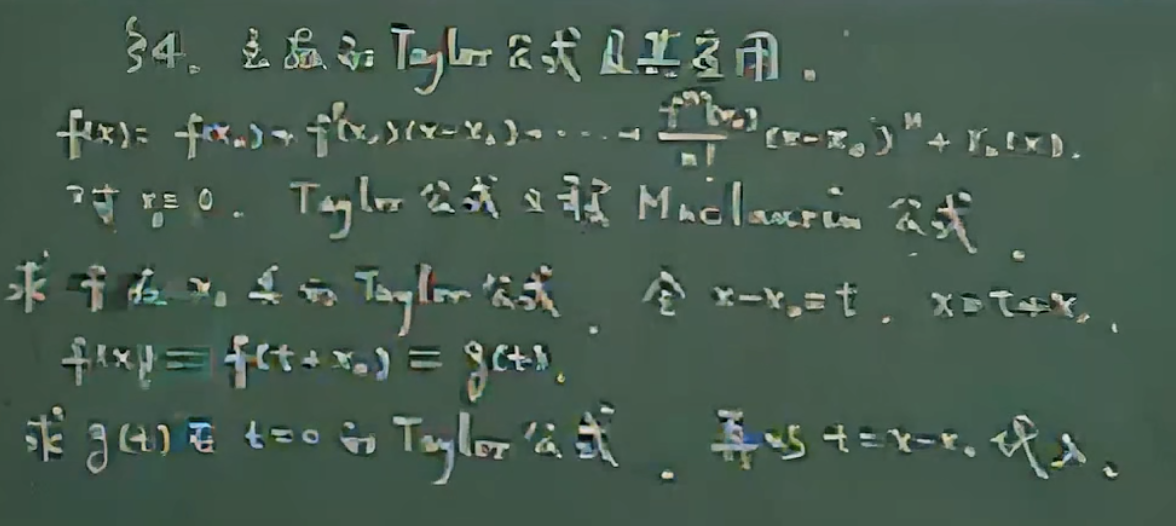 §4. 函数的Taylor公式及其应用.
f(x)= f(x₀)+f'(x₀)(x-x₀)+·····+ f⁽ⁿ⁾(x₀)/n! (x-x₀)ⁿ + rₙ(x).
x₀=0. Taylor公式又称 Maclaurin 公式.
求 f 在 x₀ 点的 Taylor 公式. 令 x-x₀=t. x=t+x₀.
f(x) = f(t+x₀) = g(t).
求 g(t) 在 t=0 的 Taylor 公式. 再以 t=x-x₀ 代入.